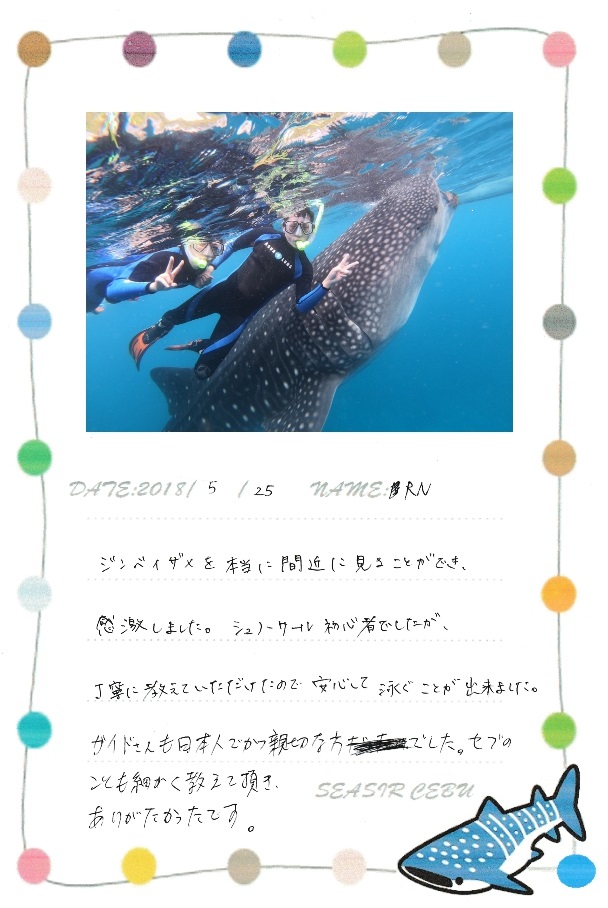 DATE:2018/ 5 / 25 NAME: RN
ジンベイザメを本当に間近に見ることができ、
感激しました。シュノーケール初心者でしたが、
丁寧に教えていただけたので安心して泳ぐことが出来ました。
ガイドさんも日本人でかつ親切な方でした。セブの
ことも細かく教えて頂き、
ありがたかったです。
SEASIR CEBU